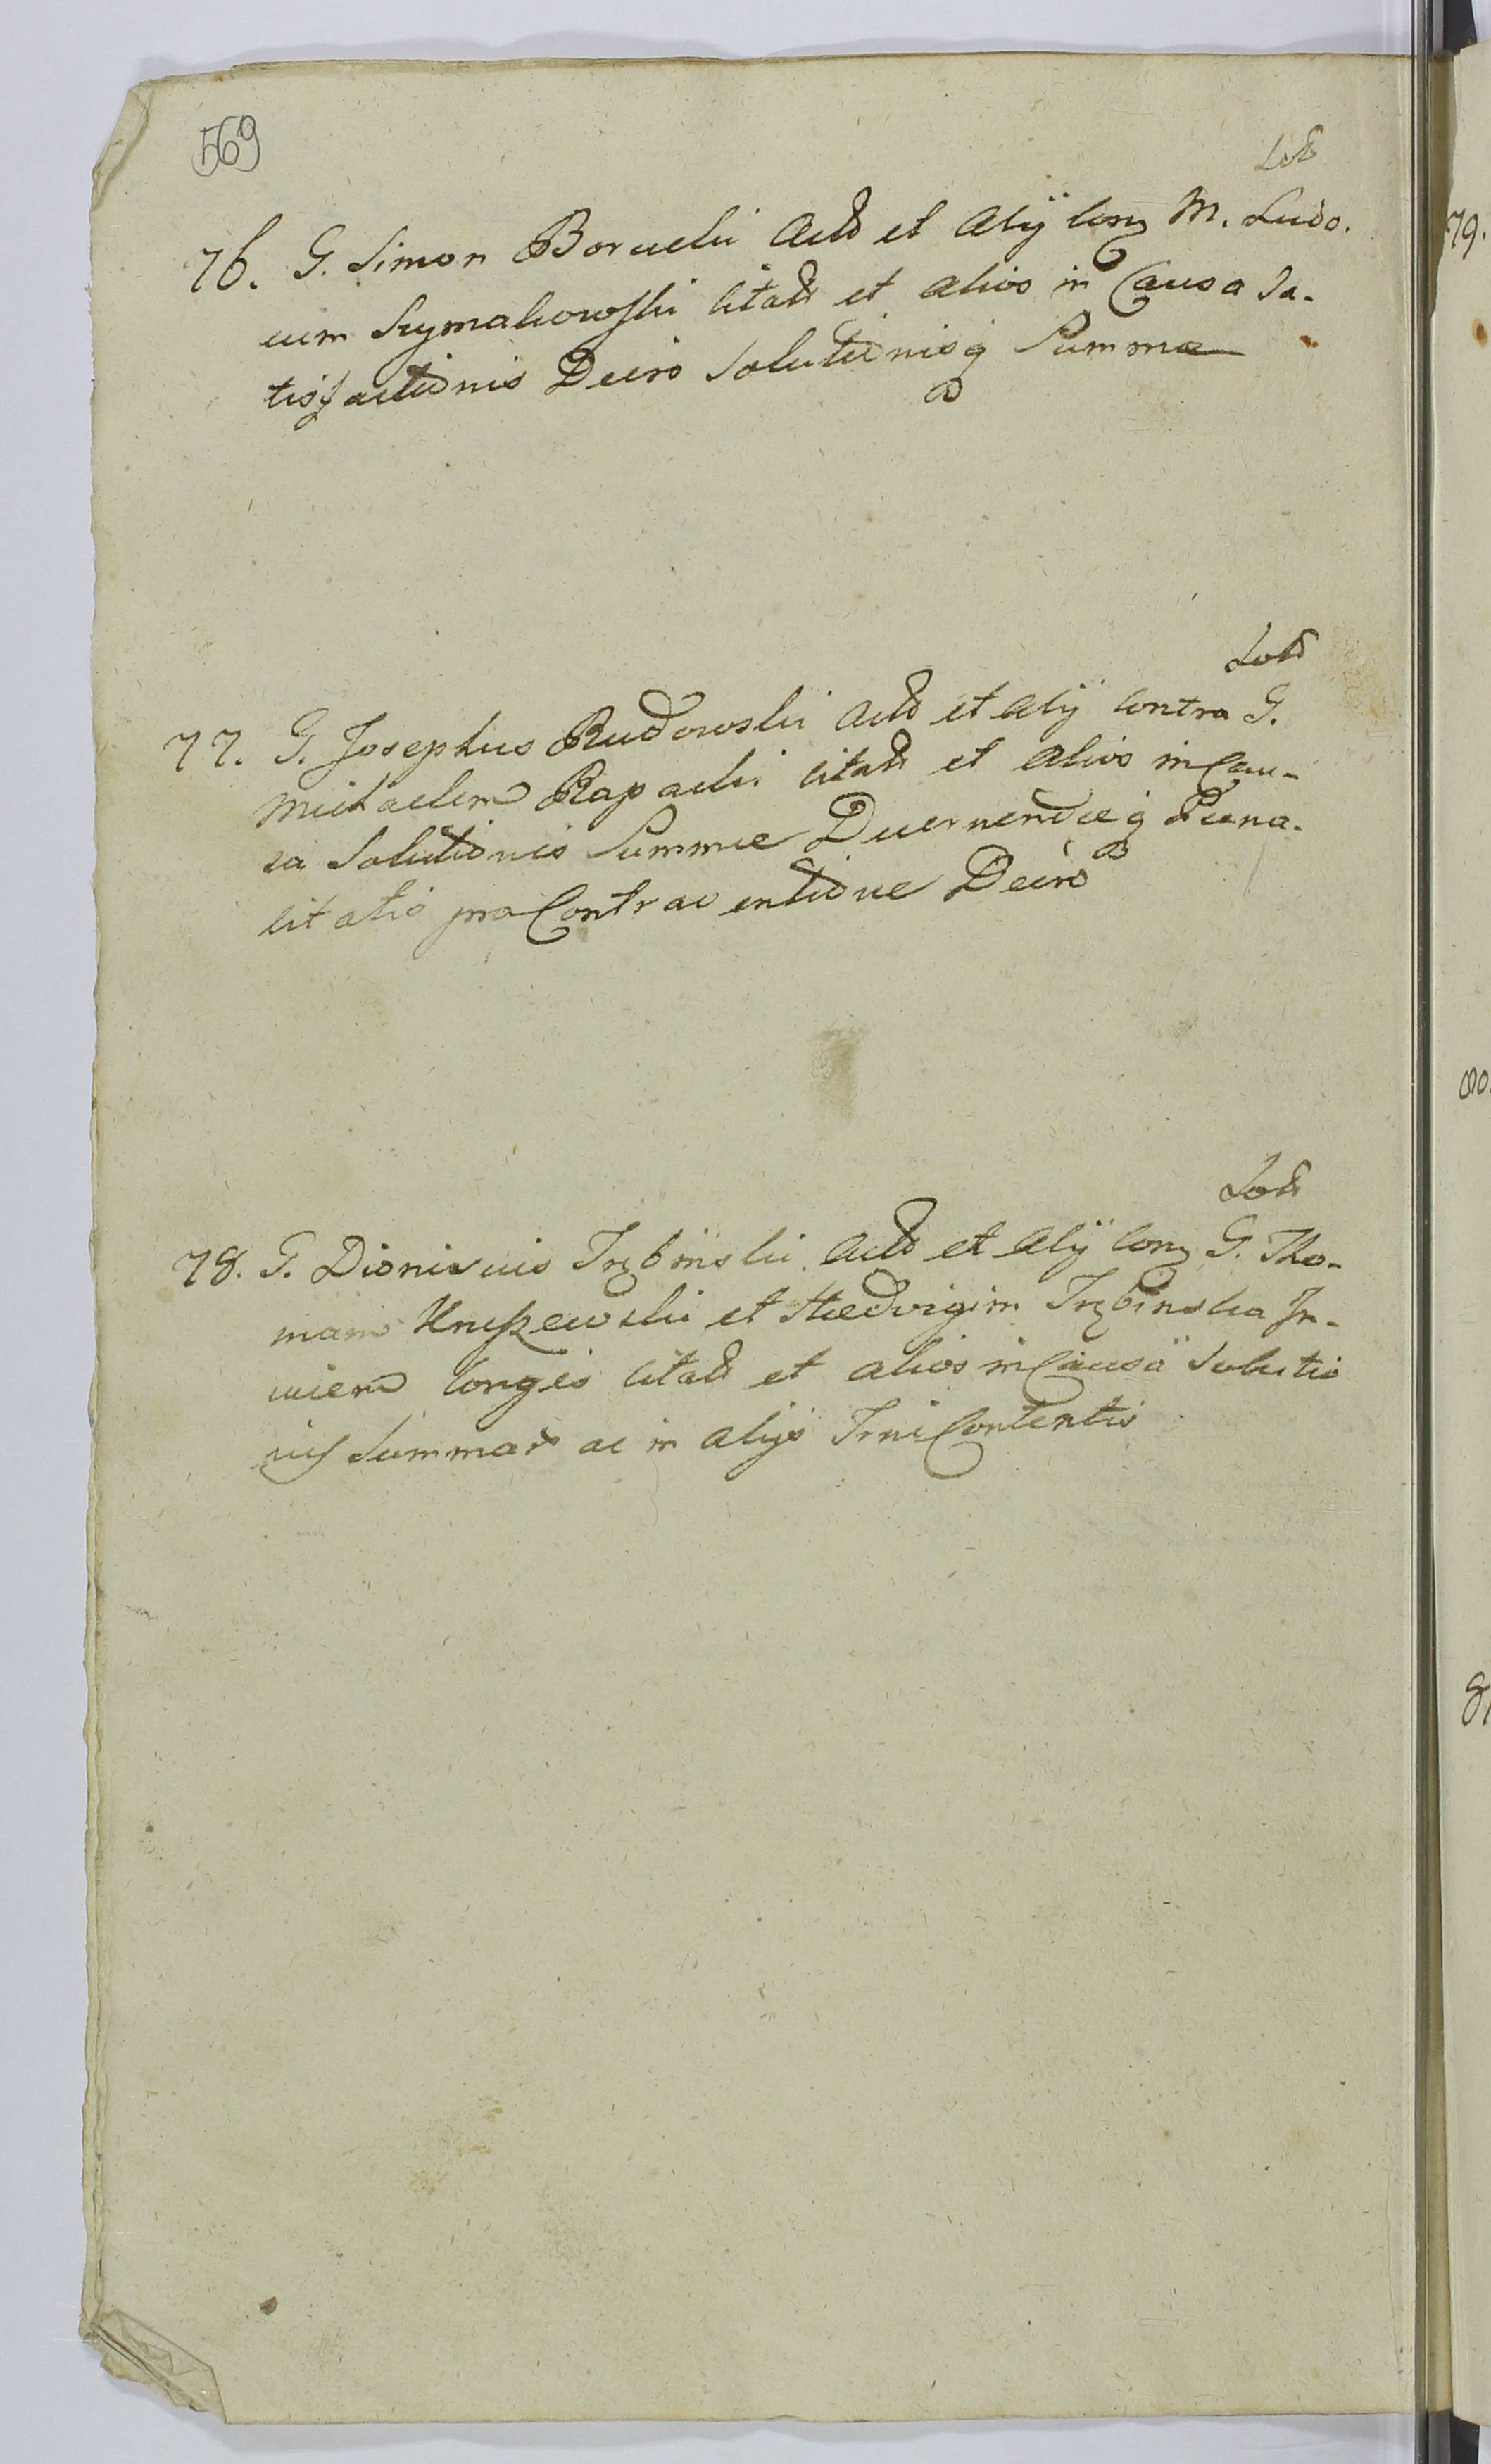 569
76. G. Simon Borucki Actor et Alÿ Conz M. Ludo.
cum Szymakowski Citatos et alios in Causa Sa-
tisfactionis Decro Solutionisq Summæ
77. G. Josephus Rudowski Actor et Alÿ Contra G.
Michaelem Rapacki Citatos et alios in Cau-
sa Solutionis Summæ Decernendæq Pœna-
litatis pro Contraventione Decro
78. G. Dionisius Trzbinski Actor et Alÿ Conz G. Tho-
mam et Hedvigim Trzbinska In-
vicem Conges Citatos et alios in Causa Solutio
nis Summar ac in Alÿs Trni Contentis
79.
80.
81